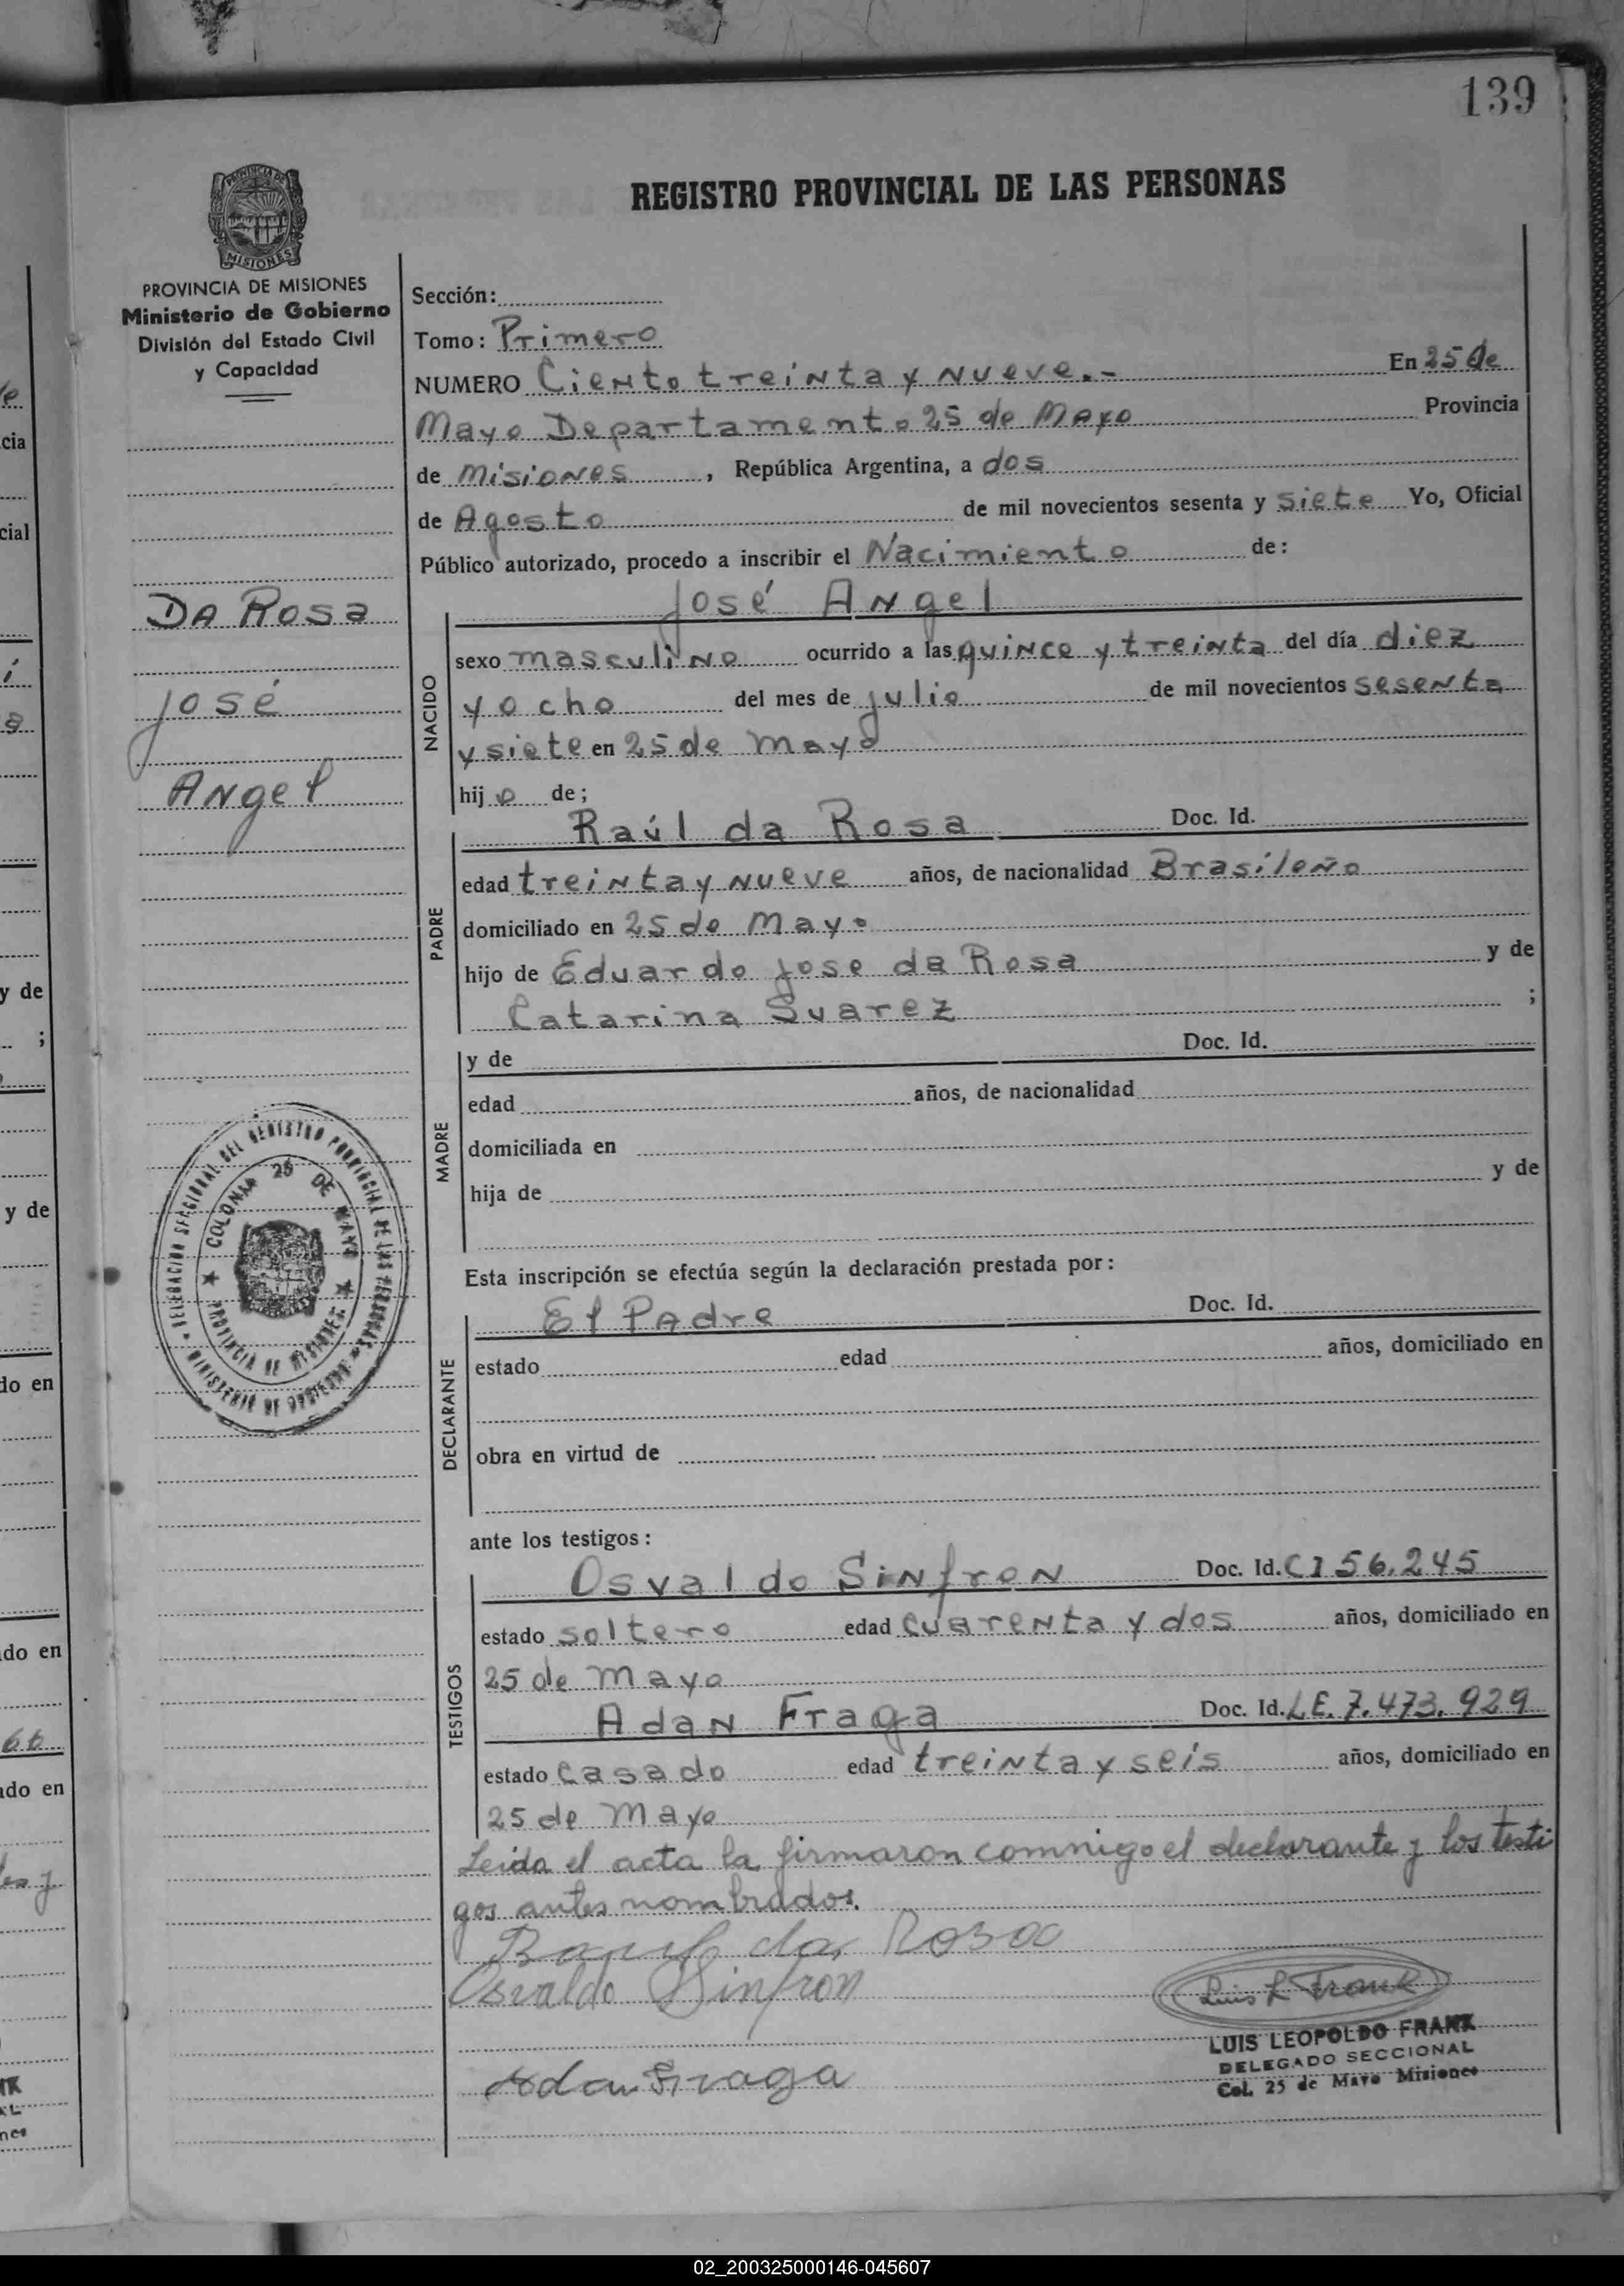 139
REGISTRO PROVINCIAL DE LAS PERSONAS
PROVINCIA DE
MISIONES
PROVINCIA DE MISIONES
Ministerio de Gobierno
División del Estado Civil
y Capacidad
DA ROSA
José
Angel
Sección:
Tomo: Primero
NUMERO Ciento treinta y nueve.- En 25 de
Mayo Departamento 25 de Mayo Provincia
de Misiones, República Argentina, a dos
de Agosto de mil novecientos sesenta y siete Yo, Oficial
Público autorizado, procedo a inscribir el Nacimiento de:
José Angel
NACIDO
sexo masculino ocurrido a las quince y treinta del día diez
y ocho del mes de julio de mil novecientos sesenta
y siete en 25 de Mayo
hijo de;
Raúl da Rosa Doc. Id.
PADRE
edad treinta y nueve años, de nacionalidad Brasileño
domiciliado en 25 de Mayo
hijo de Eduardo Jose da Rosa y de
Catarina Suarez ;
y de Doc. Id.
MADRE
edad años, de nacionalidad
domiciliada en
hija de y de
DELEGACION SECCIONAL DEL REGISTRO PROVINCIAL DE LAS PERSONAS
MINISTERIO DE GOBIERNO
COLONIA 25 DE MAYO
PROVINCIA DE MISIONES
Esta inscripción se efectúa según la declaración prestada por:
El Padre Doc. Id.
DECLARANTE
estado edad años, domiciliado en
obra en virtud de
ante los testigos:
Osvaldo Sinfron Doc. Id. CI 56.245
TESTIGOS
estado soltero edad cuarenta y dos años, domiciliado en
25 de Mayo
Adan Fraga Doc. Id. LE. 7.473.929
estado casado edad treinta y seis años, domiciliado en
25 de Mayo
Leida el acta la firmaron comnigo el declarante y los testi
gos antes nombrados.
Raul da Rosa
Osvaldo Sinfron
Luis L Frank
LUIS LEOPOLDO FRANK
DELEGADO SECCIONAL
Col. 25 de Mayo Misiones
Adan Fraga
02_200325000146-045607